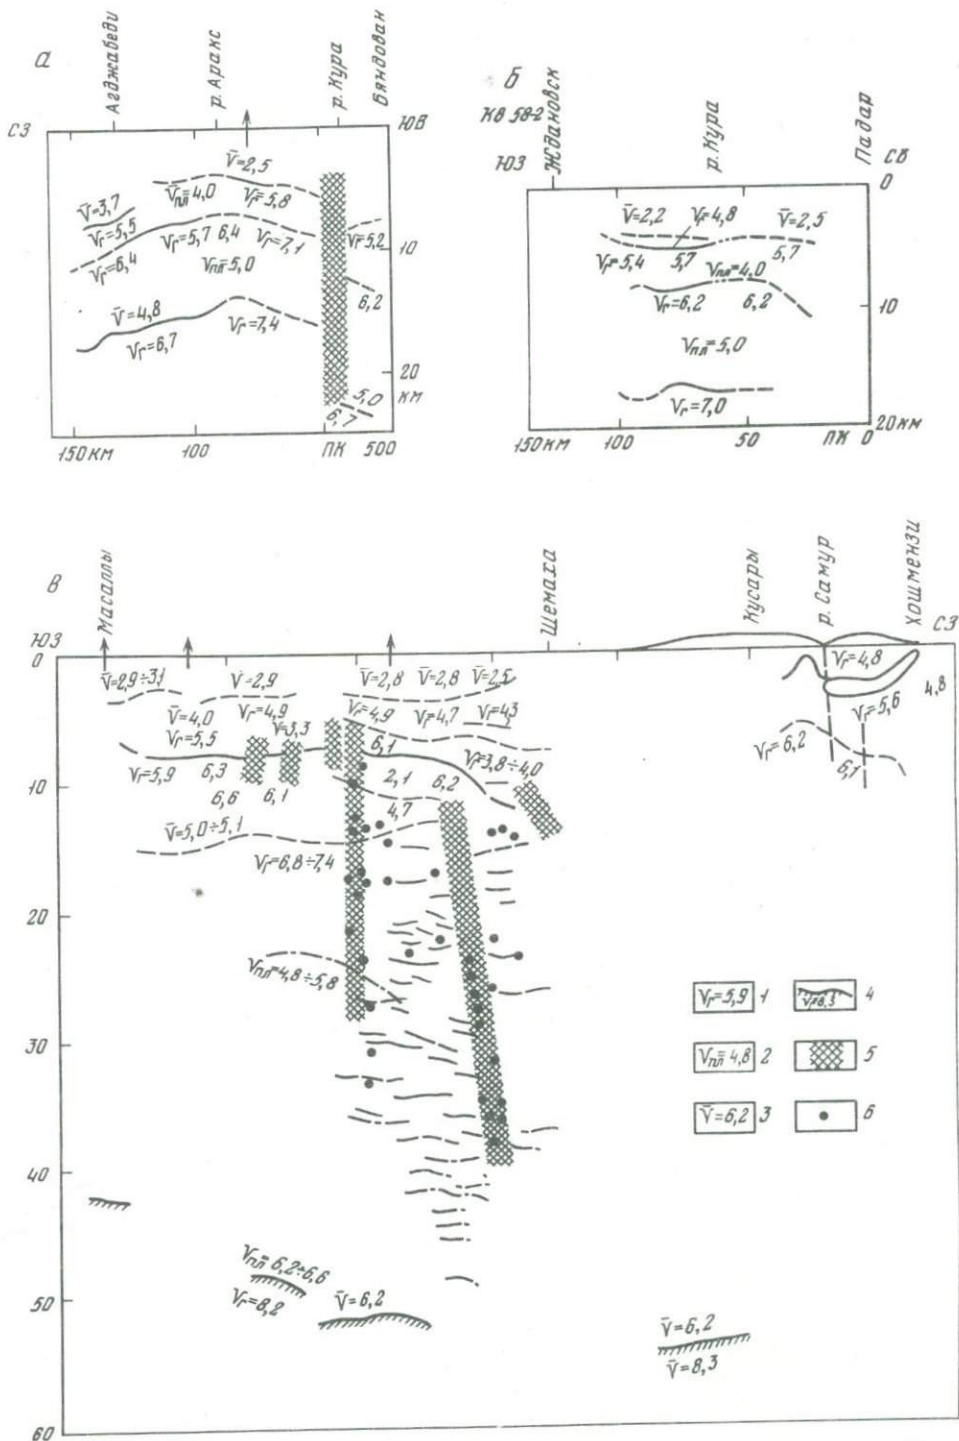 а
Агджабеди
р. Аракс
р. Кура
Бяндован
СЗ
ЮВ
V̄=2,5
Vпл=4,0
Vг=5,8
V̄=3,7
Vг=5,5
Vг=5,7 6,4
Vг=7,1
Vг=5,2
10
Vг=6,4
Vпл=5,0
6,2
V̄=4,8
Vг=7,4
Vг=6,7
20
км
5,0
6,7
150 км 100 ПК 500
б
КВ 58-2
ЮЗ
Ждановск
р. Кура
Падар
СВ
0
V̄=2,2
Vг=4,8
V̄=2,5
Vг=5,4
5,7
5,7
Vпл=4,0
Vг=6,2
6,2
10
Vпл=5,0
Vг=7,0
20 км
100 50 ПК 0
в
Масаллы
Шемаха
Кусары
р. Самур
Хошмензи
ЮЗ
СЗ
0
V̄=2,9÷3,1
V=2,9
V̄=2,8
V̄=2,8
V̄=2,5
Vг=4,8
4,8
V̄=4,0
Vг=4,9
Vг=4,9
Vг=4,7
Vг=4,3
Vг=5,6
Vг=5,5
V=3,3
6,1
Vг=3,8÷4,0
Vг=6,2
6,1
Vг=5,9
6,3
6,6
6,1
2,1
6,2
10
4,7
V̄=5,0÷5,1
Vг=6,8÷7,4
20
Vпл=4,8÷5,8
Vг=5,9 1
Vг=8,3 4
30
Vпл=4,8 2
5
V̄=6,2 3
6
40
Vпл=6,2÷6,6
Vг=8,2
V̄=6,2
50
V̄=6,2
V̄=8,3
60